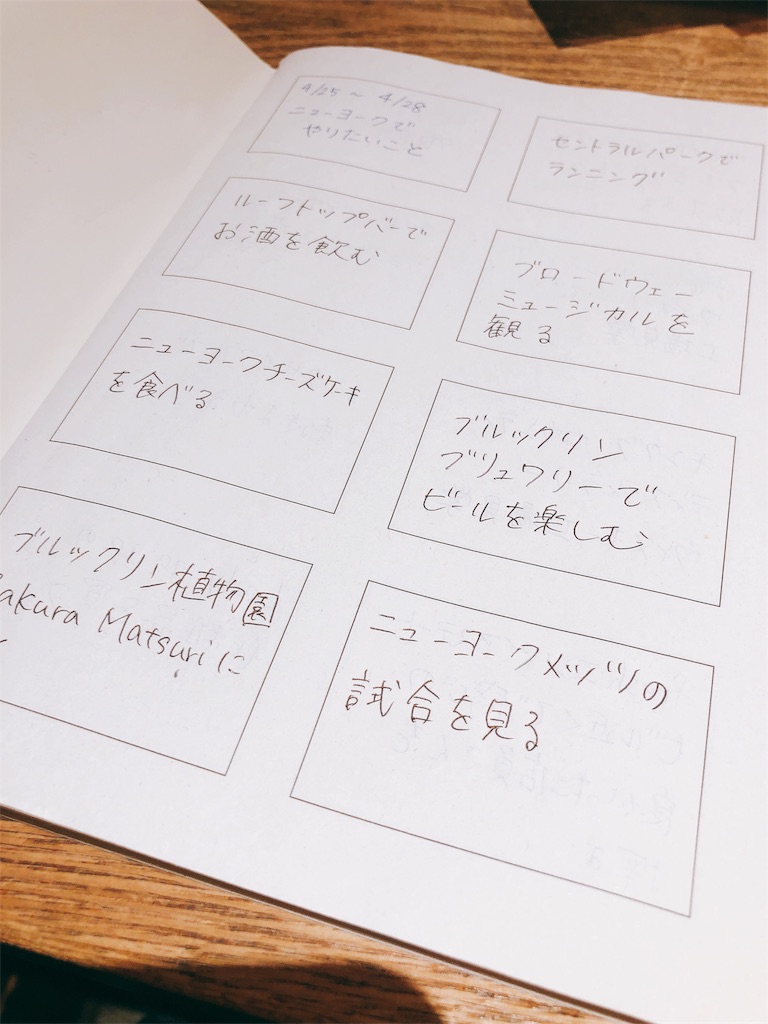 4/25 ~ 4/28
ニューヨークで
やりたいこと
セントラルパークで
ランニング
ルーフトップバーで
お酒を飲む
ブロードウェー
ミュージカルを
観る
ニューヨークチーズケーキ
を食べる
ブルックリン
ブリュワリーで
ビールを楽しむ
ブルックリン植物園
Sakura Matsuriに
ニューヨークメッツの
試合を見る